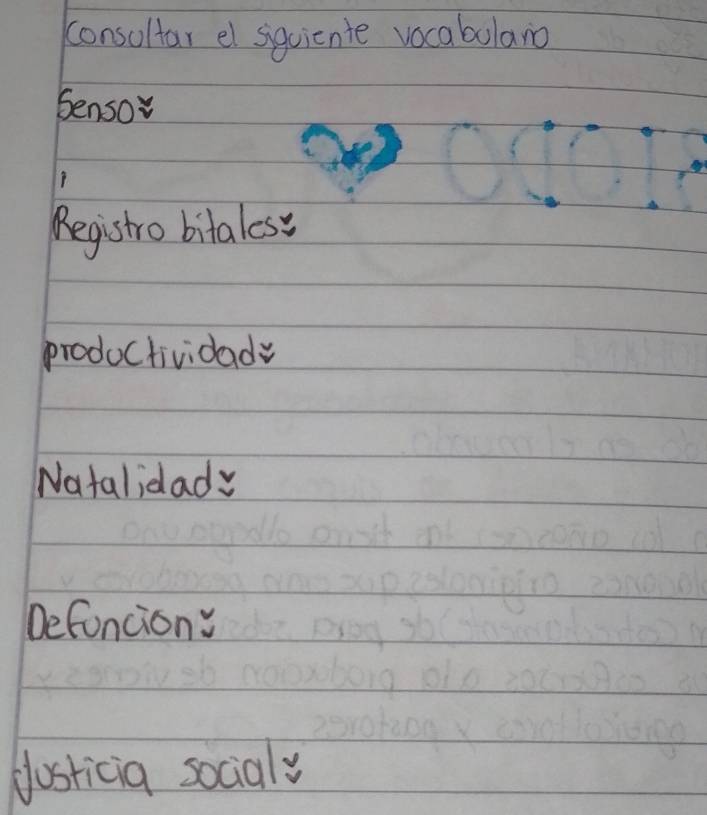 consultar el siguiente vocabulario
Senso:
Registro bitales:
productividad:
Natalidad:
Defuncion:
Justicia social: